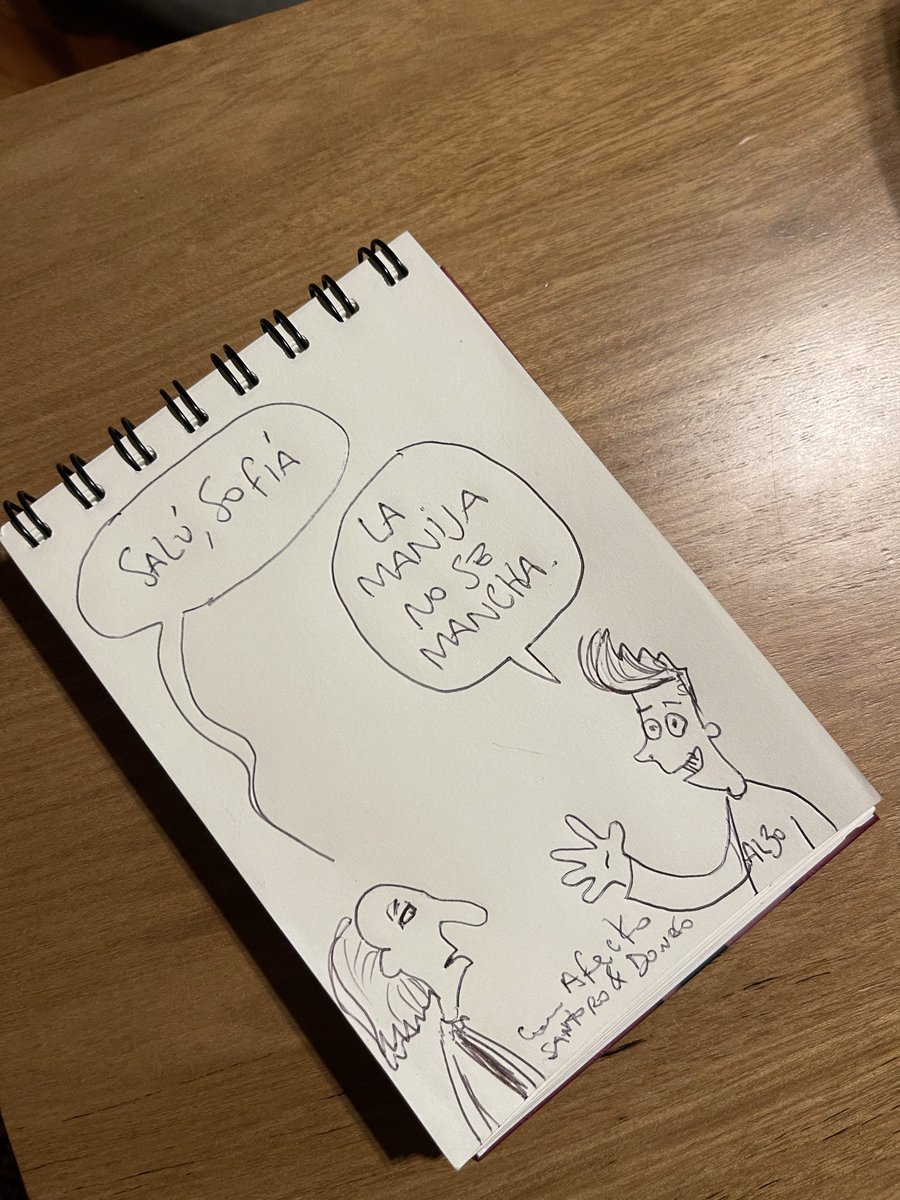 SALÚ, SOFIÁ
LA
MANIJA
NO SE
MANCHA.
ALBO
Con Afecto
SANTORO & DONGO